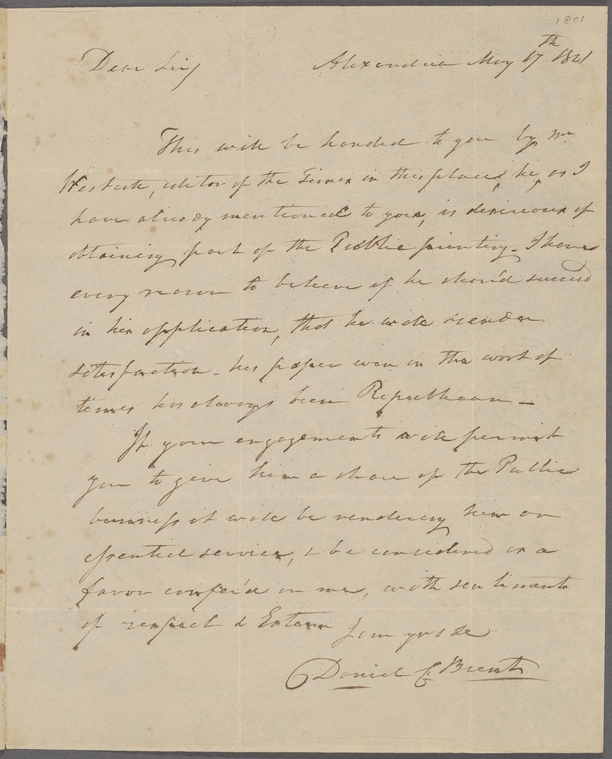 1801
Dear Sir,
Alexandria May 17th 1801
This will be handed to you by Mr
Westcott, editor of the Times in this place, he, as I
have already mentioned to you, is desireous of
obtaining part of the Public printing. I have
every reason to believe if he should succeed
in his application, that he will render
satisfaction - his paper even in the worst of
times has always been Republican -
If your engagements will permit
you to give him a share of the Public
business it will be rendering him an
essential service, & be considered as a
favor confer'd on me, with sentiments
of respect & Esteem I am yrs &c
Daniel C Brent